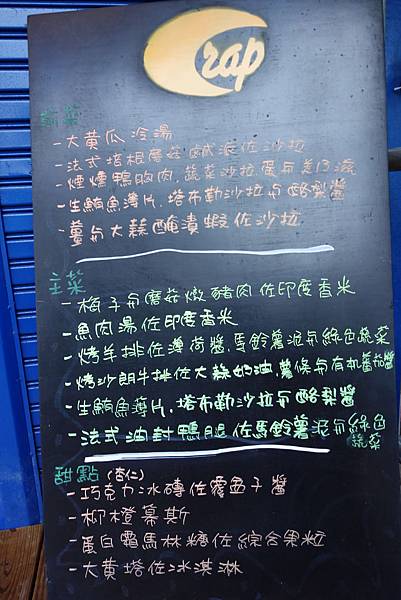 Crap
前菜
-大黃瓜冷湯
-法式塔根蘑菇鹹派佐沙拉
-煙燻鴨胸肉,蔬菜沙拉,蛋与
-生鮪魚薄片,塔布勒沙拉与酪梨醬
-薑与大蒜醃漬蝦佐沙拉
主菜
-梅子与蘑菇燉豬肉佐印度香米
-魚肉湯佐印度香米
-烤羊排佐薄荷醬,馬鈴薯泥与綠色蔬菜
-烤沙朗牛排佐大蒜奶油,薯條与有机蕃茄醬
-生鮪魚薄片,塔布勒沙拉与酪梨醬
-法式油封鴨腿佐馬鈴薯泥与綠色
蔬菜
甜點(杏仁)
-巧克力冰磚佐覆盆子醬
-柳橙慕斯
-蛋白霜馬林糖佐綜合果粒
-大黃塔佐冰淇淋